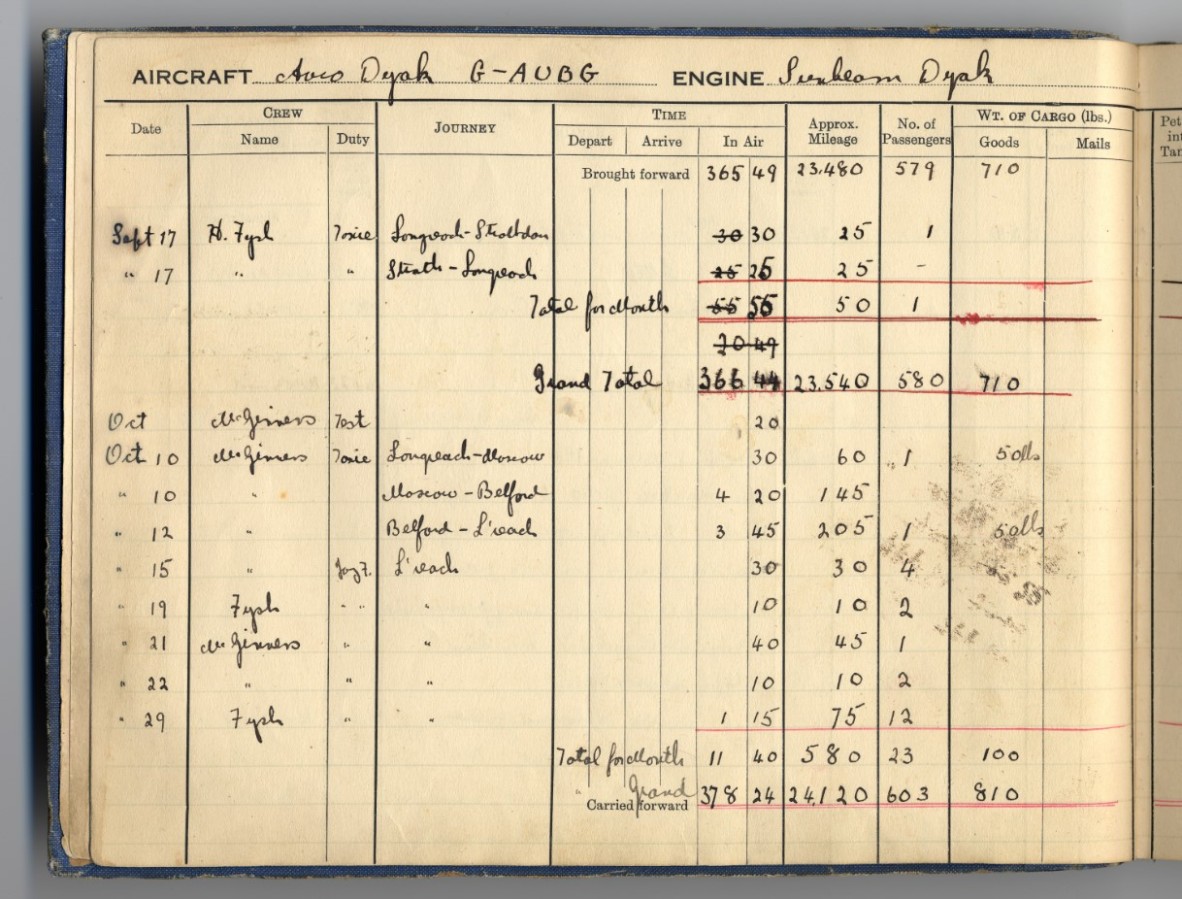 AIRCRAFT Avro Dyak G-AUBG ENGINE Sunbeam Dyak
Date CREW Name Duty JOURNEY TIME Depart Arrive In Air Approx. Mileage No. of Passengers WT. OF CARGO (lbs.) Goods Mails
Brought forward 365 49 23.480 579 710
Sept 17 H. Fysh Taxie Longreach - Strathdon 30 30 25 1
" 17 " " Strath - Longreach 25 25 25 -
Total for Month 55 55 50 1
20 49
Grand Total 366 44 23.540 580 710
Oct McGinness Test 20
Oct 10 McGinness Taxie Longreach - Moscow 30 60 1 50lbs
" 10 " Moscow - Belford 4 20 145
" 12 " Belford - L'reach 3 45 205 1 50lbs
" 15 " Joy F. L'reach 30 30 4
" 19 Fysh " " " 10 10 2
" 21 McGinness " " 40 45 1
" 22 " " " 10 10 2
" 29 Fysh " " 1 15 75 12
Total for Month 11 40 580 23 100
" Grand
Carried forward 378 24 24,120 603 810
Pet
int
Tan